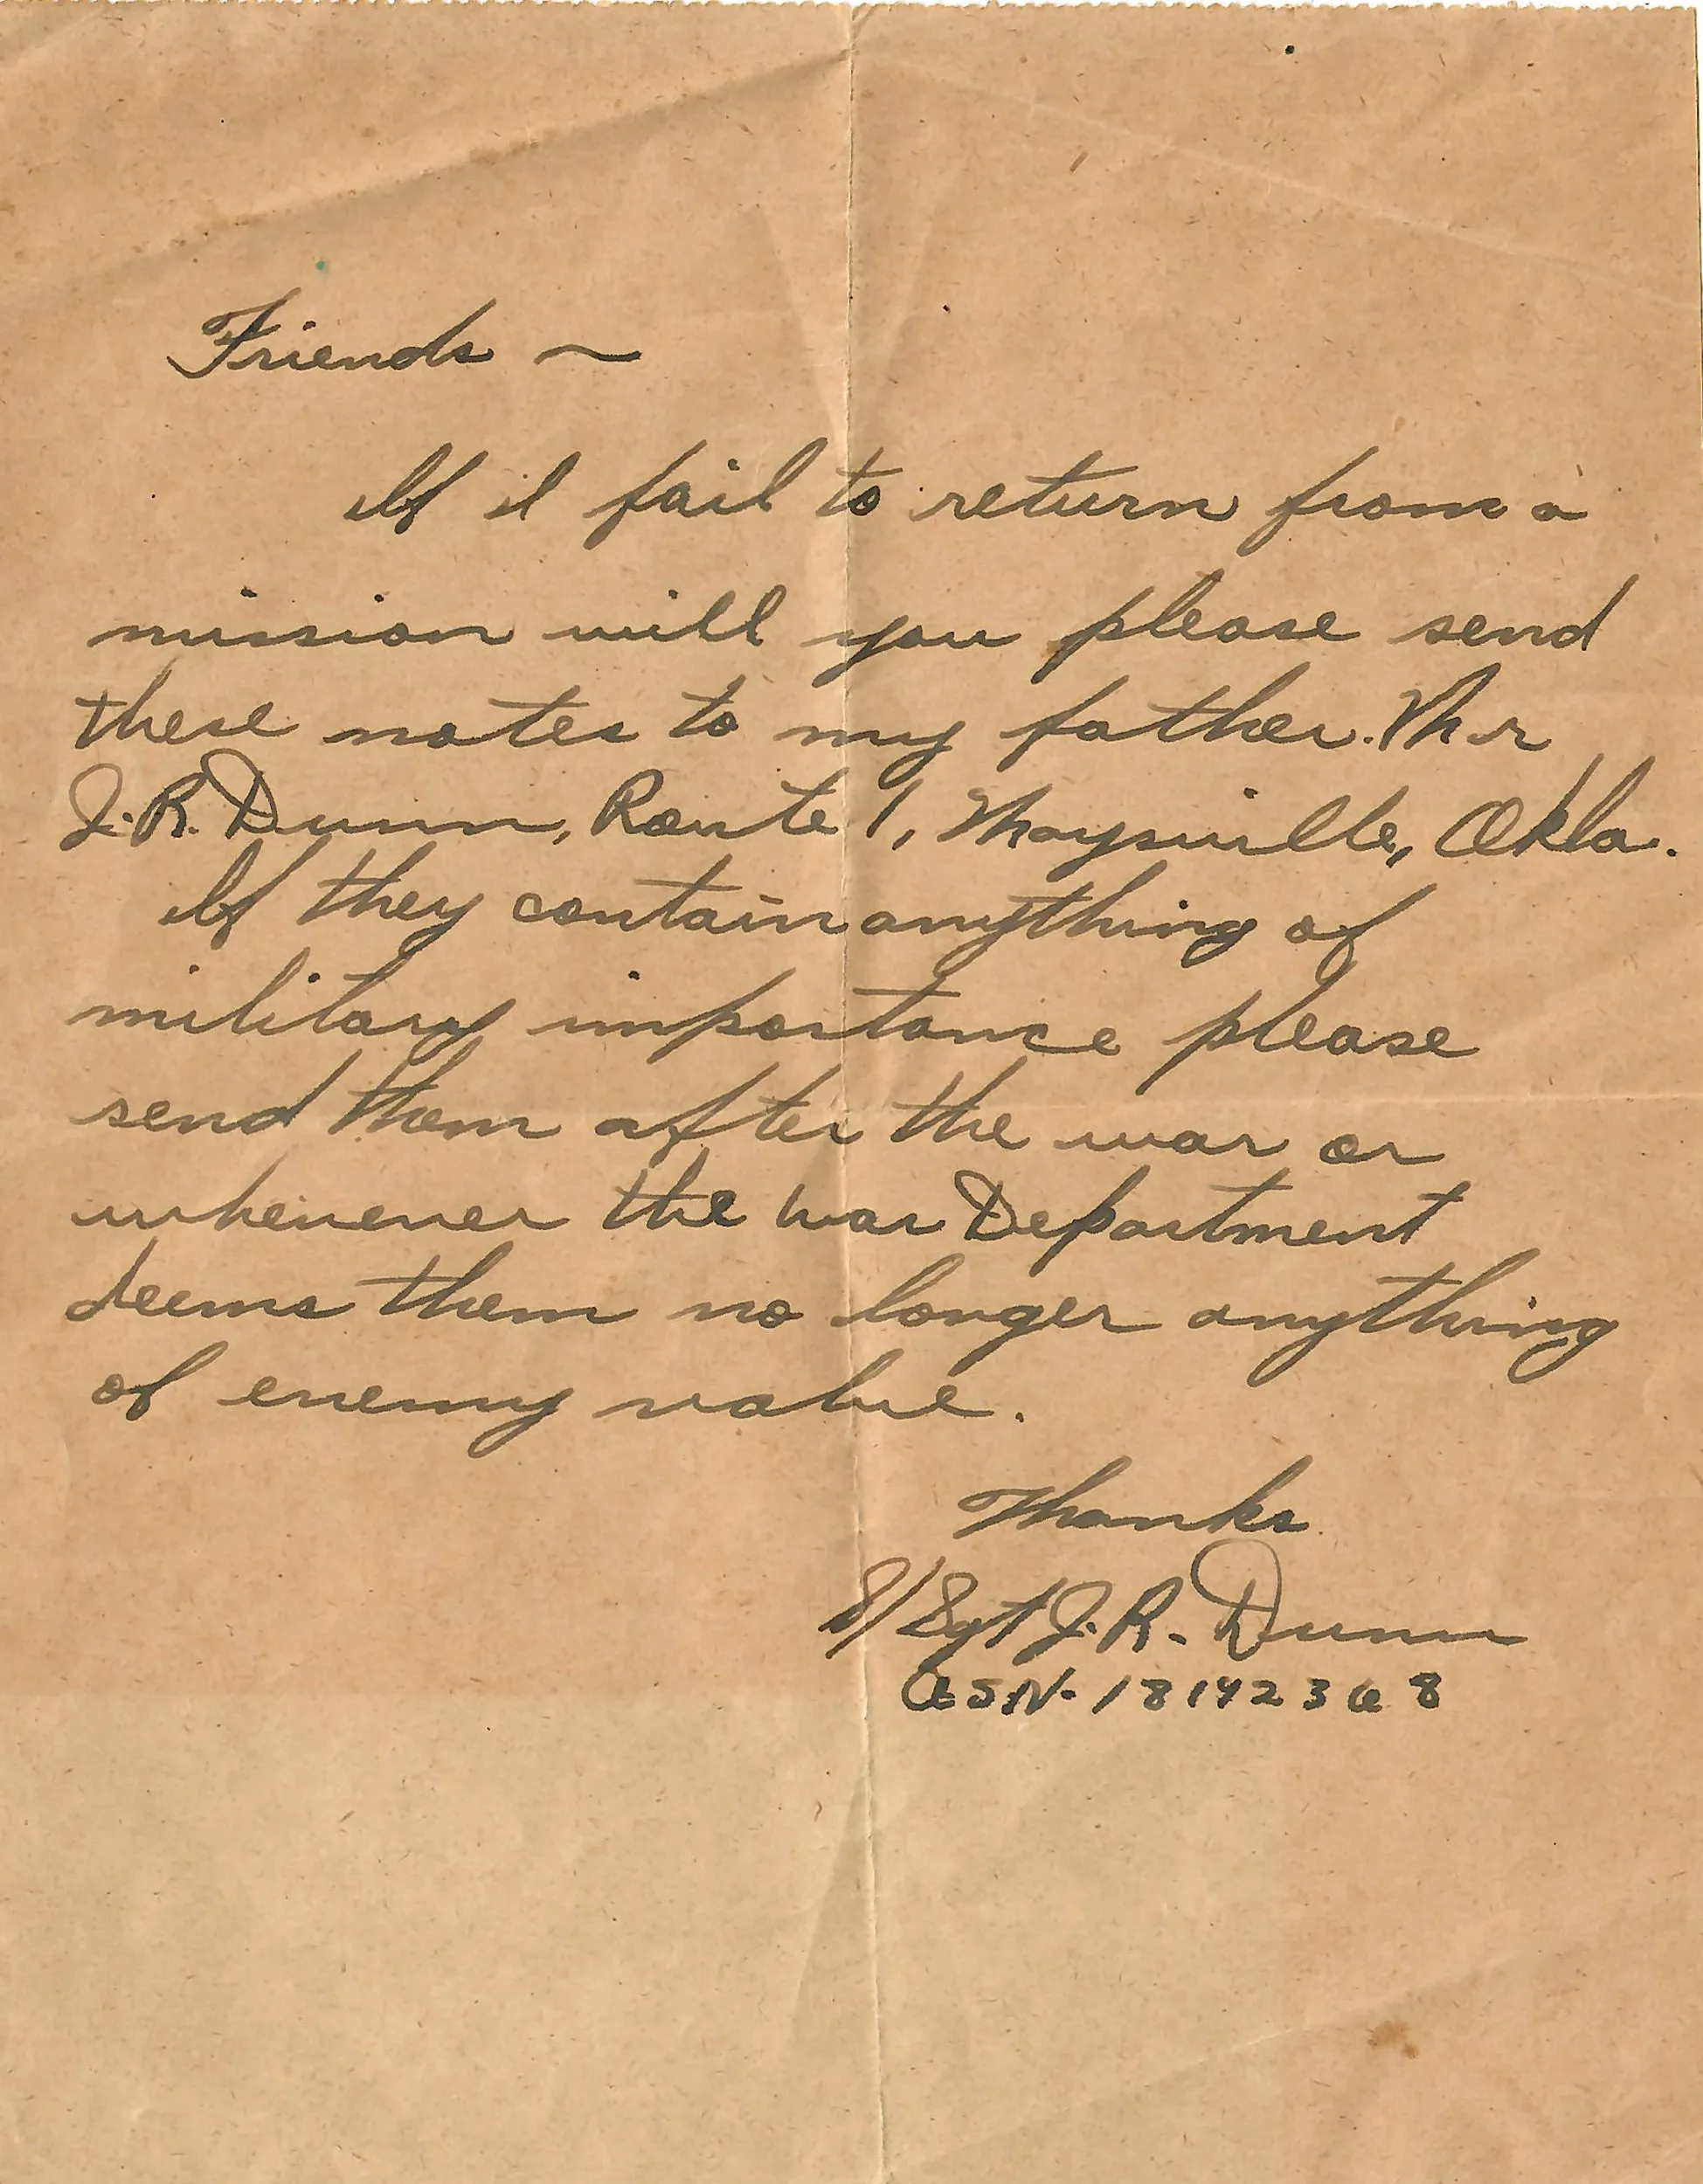 Friends ~
If I fail to return from a
mission will you please send
these notes to my father. Mr
J. R. Dunn, Route 1, Maysville, Okla.
If they contain anything of
military importance please
send them after the war or
whenever the war Department
deems them no longer anything
of enemy value.
Thanks
S/Sgt J. R. Dunn
ASN- 18142368